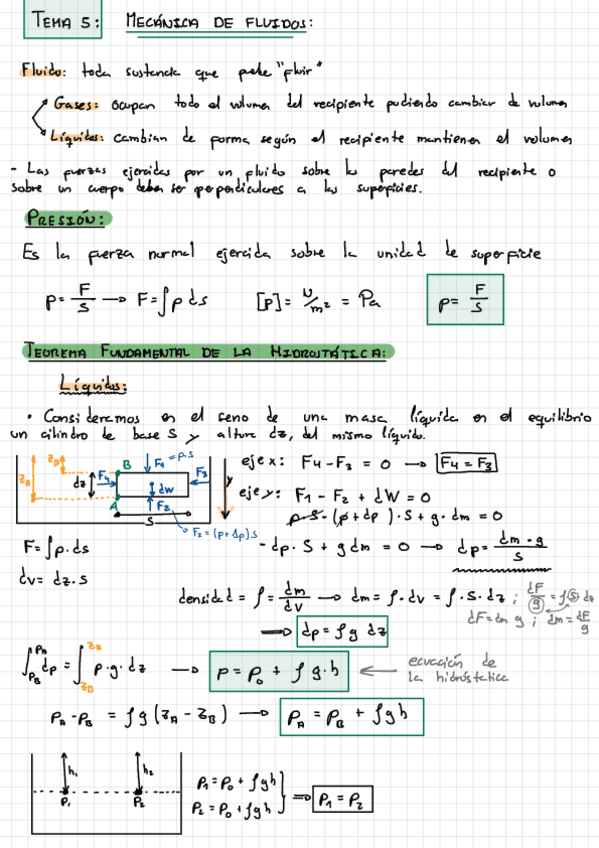 TEMA 5: MECÁNICA DE FLUIDOS:
Fluido: toda sustancia que puede "fluir"
Gases: ocupan todo el volumen del recipiente pudiendo cambiar de volumen
Líquidos: cambian de forma según el recipiente mantienen el volumen
- Las fuerzas ejercidas por un fluido sobre las paredes del recipiente o
sobre un cuerpo deben ser perpendiculares a las superficies.
PRESIÓN:
Es la fuerza normal ejercida sobre la unidad de superficie
p = F/S → F = ∫p ds [p] = N/m² = Pa p = F/S
TEOREMA FUNDAMENTAL DE LA HIDROSTÁTICA:
Líquidos:
• Consideremos en el seno de una masa líquida en el equilibrio
un cilindro de base S y altura dz, del mismo líquido.
z_A z_B dz F4 B F1 = p.s F3 dw A F2 S y
F2 = (p+Δp) s
eje x: F4 - F3 = 0 → F4 = F3
eje y: F1 - F2 + dW = 0
p·S - (p + dp)·S + g·dm = 0
F = ∫p.ds
- dp·S + g dm = 0 → dp = dm·g/S
dv = dz.s
densidad = ρ = dm/dv → dm = ρ·dv = ρ·S·dz ; dF/g = ρ S dz
dF = dm g ; dm = dF/g
⇒ dp = ρg dz
∫_{P_B}^{P_A} dp = ∫_{z_B}^{z_A} ρ·g·dz → p = p₀ + ρg·h ← ecuación de
la hidróstatica
P_A - P_B = ρg (z_A - z_B) → P_A = P_B + ρgh
h₁ h₂
P₁ P₂
P₁ = P₀ + ρgh
P₂ = P₀ + ρgh
⇒ P₁ = P₂